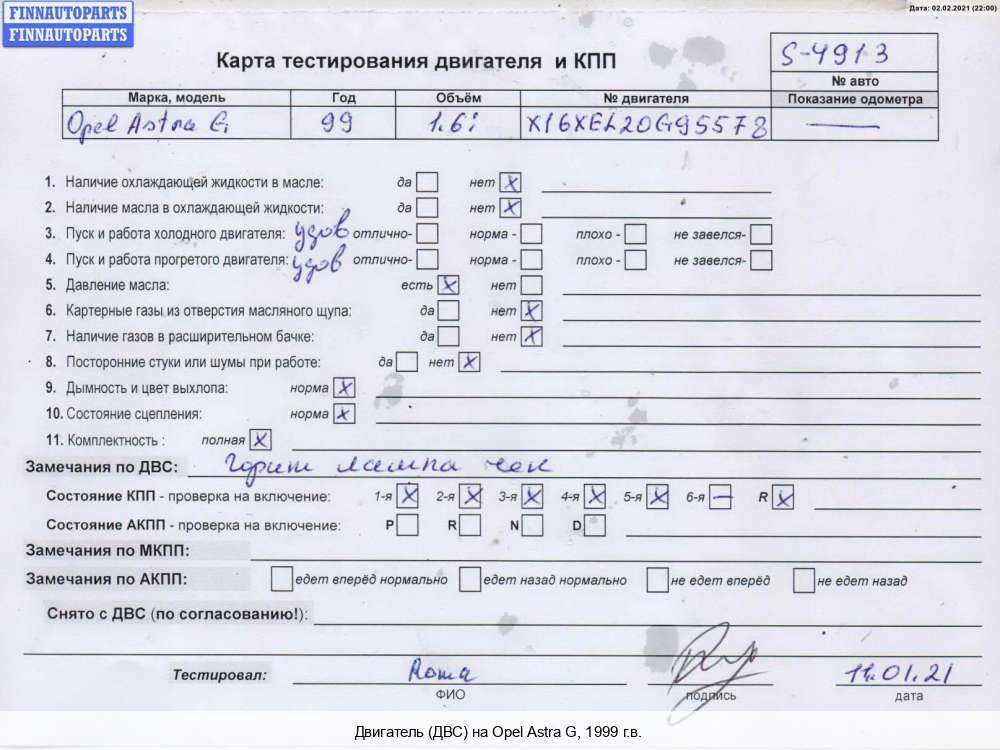 FINNAUTOPARTS
FINNAUTOPARTS
Дата: 02.02.2021 (22:00)
Карта тестирования двигателя и КПП
S-4913
№ авто
Марка, модель Год Объём № двигателя Показание одометра
Opel Astra G 99 1.6i X16XEL20G95578 —
1. Наличие охлаждающей жидкости в масле: да нет X
2. Наличие масла в охлаждающей жидкости: да нет X
3. Пуск и работа холодного двигателя: удов отлично- норма - плохо - не завелся-
4. Пуск и работа прогретого двигателя: удов отлично- норма - плохо - не завелся-
5. Давление масла: есть X нет
6. Картерные газы из отверстия масляного щупа: да нет X
7. Наличие газов в расширительном бачке: да нет X
8. Посторонние стуки или шумы при работе: да нет X
9. Дымность и цвет выхлопа: норма X
10. Состояние сцепления: норма X
11. Комплектность : полная X
Замечания по ДВС: Горит лампа чек
Состояние КПП - проверка на включение: 1-я X 2-я X 3-я X 4-я X 5-я X 6-я — R X
Состояние АКПП - проверка на включение: P R N D
Замечания по МКПП:
Замечания по АКПП: едет вперёд нормально едет назад нормально не едет вперёд не едет назад
Снято с ДВС (по согласованию!):
Тестировал: Roma 14.01.21
ФИО подпись дата
Двигатель (ДВС) на Opel Astra G, 1999 г.в.